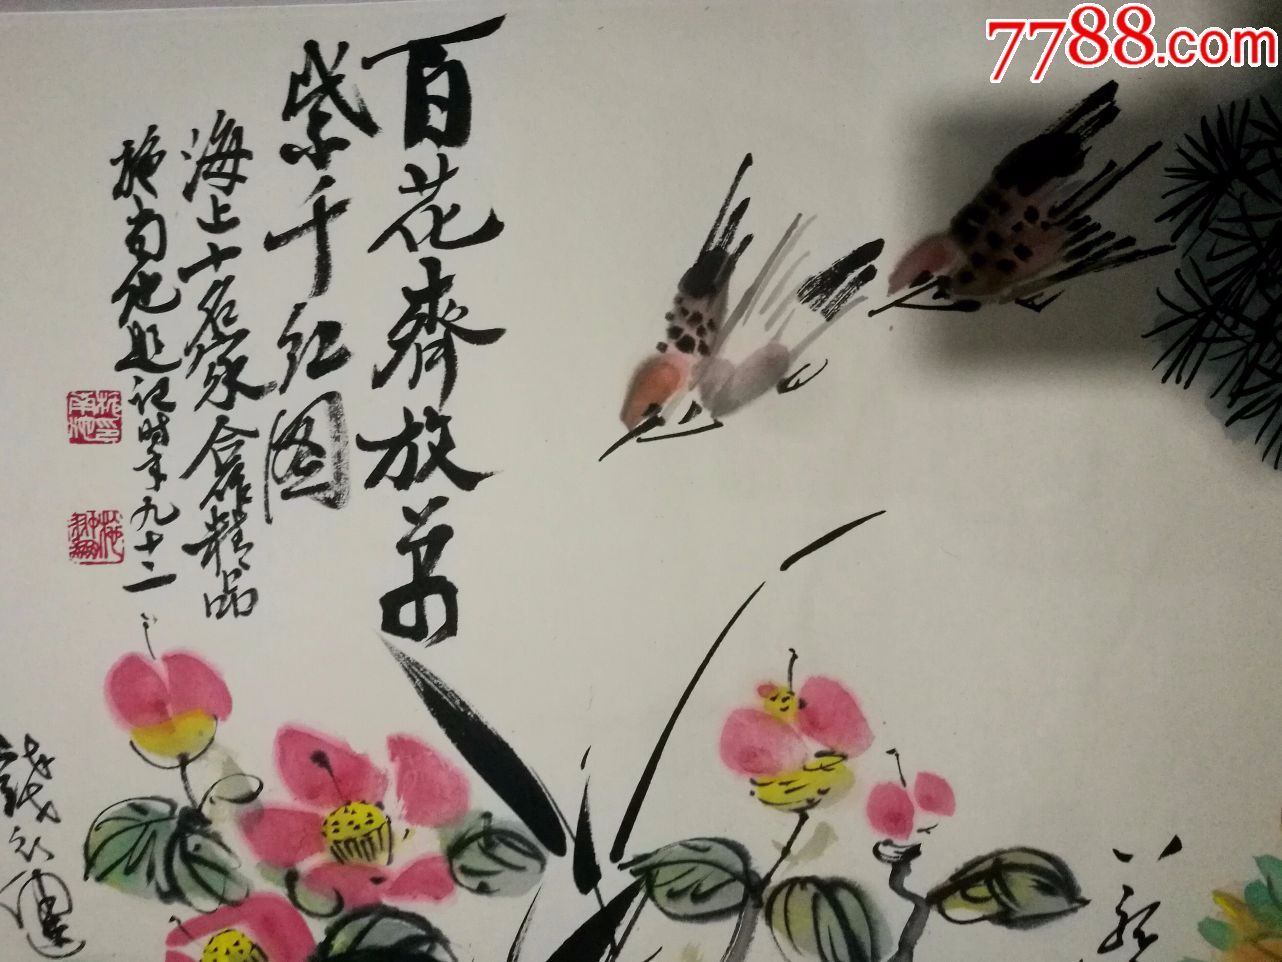 7788.com
百花齊放万
紫千红图
海上十名家合作精品
施南池题记时年九十二
钱行健